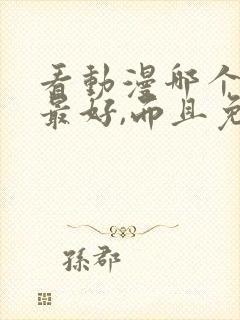 看動漫哪个
最好,而且免
孫郡